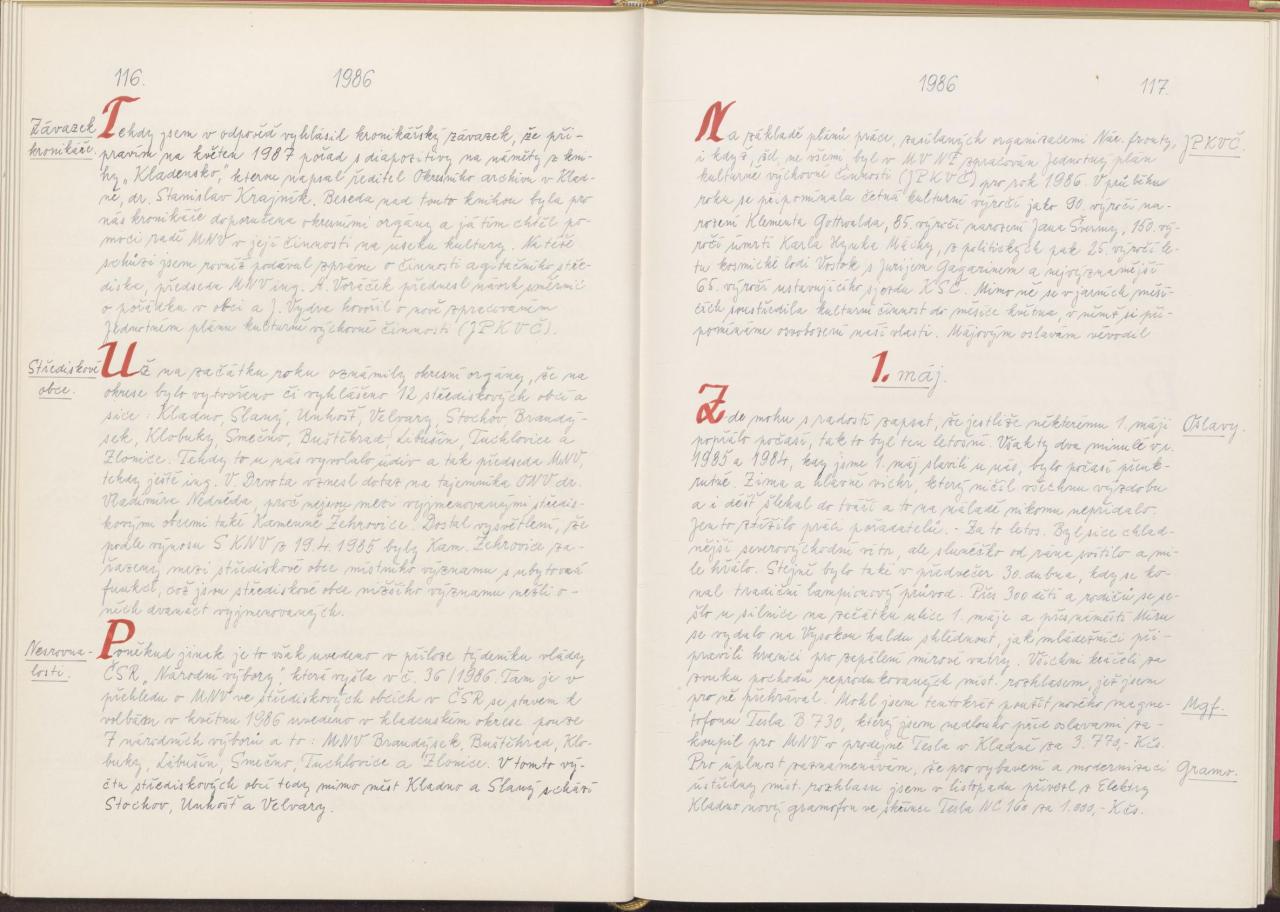 116. 1986
Závazek
kronikáře.
Tehdy jsem v odpověď vyhlásil kronikářský závazek, že při-
pravím na květen 1987 pořad s diapozitivy na náměty z kni-
hy „Kladensko," kterou napsal ředitel Okresního archivu v Klad-
ně, dr. Stanislav Krajník. Beseda nad touto knihou byla pro
nás kronikáře doporučena okresními orgány a já tím chtěl po-
moci radě MNV v její činnosti na úseku kultury. Na téže
schůzi jsem rovněž podával zprávu o činnosti agitačního stře-
diska, předseda MNV ing. A. Voráček přednesl návrh směrnic
o pořádku v obci a J. Vydra hovořil o nově zpracovaném
Jednotném plánu kulturně výchovné činnosti (JPKVČ).
Střediskové
obce.
Už na začátku roku oznámily okresní orgány, že na
okrese bylo vytvořeno či vyhlášeno 12 střediskových obcí a
sice: Kladno, Slaný, Unhošť, Velvary, Stochov, Brandý-
sek, Klobuky, Smečno, Buštěhrad, Libušín, Tuchlovice a
Zlonice. Tehdy to u nás vyvolalo údiv a tak předseda MNV,
tehdy ještě ing. V. Drvota vznesl dotaz na tajemníka ONV dr.
Vladimíra Nedvěda, proč nejsou mezi vyjmenovanými středis-
kovými obcemi také Kamenné Žehrovice. Dostal vysvětlení, že
podle výnosu SKNV z 19.4.1985 byly Kam. Žehrovice za-
řazeny mezi střediskové obce místního významu s ubytovná
funkcí, což jsou střediskové obce nižšího významu nežli o-
něch dvanáct vyjmenovaných.
Nesrovna-
losti.
Poněkud jinak je to však uvedeno v příloze týdeníku vlády
ČSR „Národní výbory", která vyšla v č. 36/1986. Tam je v
přehledu o MNV ve střediskových obcích v ČSR se stavem k
volbám v květnu 1986 uvedeno v kladenském okrese pouze
7 národních výborů a to: MNV Brandýsek, Buštěhrad, Klo-
buky, Libušín, Smečno, Tuchlovice a Zlonice. V tomto vý-
čtu střediskových obcí tedy mimo měst Kladno a Slaný schází
Stochov, Unhošť a Velvary.
1986 117.
Na základě plánů práce, zasílaných organizacemi Nár. fronty,
JPKVČ.
i když, žel, ne všemi byl v MV NF zpracován Jednotný plán
kulturně výchovné činnosti (JPKVČ) pro rok 1986. V průběhu
roku se připomínala četná kulturní výročí jako 90. výročí na-
rození Klementa Gottwalda, 85. výročí narození Jana Švermy, 150. vý-
ročí úmrtí Karla Hynka Máchy, z politických pak 25. výročí le-
tu kosmické lodi Vostok s Jurijem Gagarinem a nejvýznamnější
65. výročí ustavujícího sjezdu KSČ. Mimo ně se v jarních měsí-
cích soustředila kulturní činnost do měsíce května, v němž si při-
pomínáme osvobození naší vlasti. Májovým oslavám vévodil
1. máj.
Zde mohu s radostí zapsat, že jestliže některému 1. máji
Oslavy.
popřálo počasí, tak to byl ten letošní. Však ty dva minulé v r.
1985 a 1984, kdy jsme 1. máj slavili u nás, bylo počasí přeuk-
rutné. Zima a hlavně vichr, který ničil všechnu výzdobu
a i déšť šlehal do tváří a to na náladě nikomu nepřidalo.
Jen to ztížilo práci pořadatelů. - Za to letos. Byl sice chlad-
nější severovýchodní vítr, ale sluníčko od rána svítilo a mi-
le hřálo. Stejně bylo také v předvečer 30. dubna, kdy se ko-
nal tradiční lampionový průvod. Přes 300 dětí a rodičů se se-
šlo u silnice na začátku ulice 1. máje a přes náměstí Míru
se vydalo na Vysokou haldu shlédnout, jak mládežníci při-
pravili hranici pro zapálení mírové vatry. Všichni kráčeli za
zvuku pochodů reprodukovaných míst. rozhlasem, jež jsem
pro ně přehrával. Mohl jsem tentokrát použít nového magne-
Mgf.
tofonu Tesla B 730, který jsem nedlouho před oslavami za-
koupil pro MNV v prodejně Tesla v Kladně za 3.770,- Kčs.
Pro úplnost zaznamenávám, že pro vybavení a modernizaci
Gramo.
ústředny míst. rozhlasu jsem v listopadu přivezl z Elektry
Kladno nový gramofon ve skřínce Tesla NC 160 za 1.000,- Kčs.